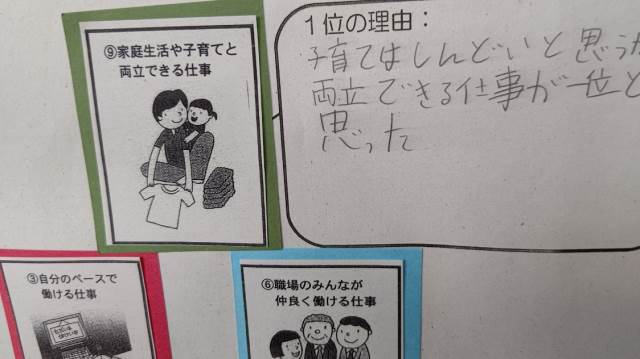 ⑨家庭生活や子育てと
両立できる仕事
1位の理由：
子育てはしんどいと思うか
両立できる仕事が一位と
思った
③自分のペースで
働ける仕事
⑥職場のみんなが
仲良く働ける仕事